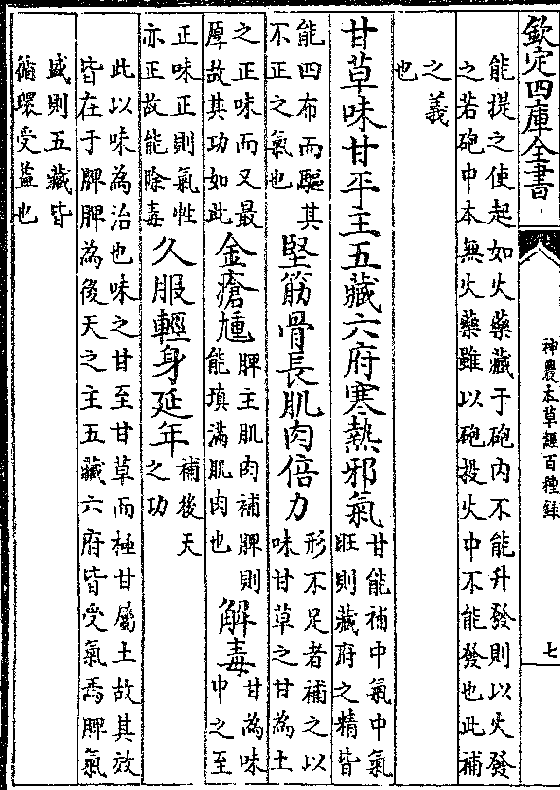 欽定四庫全書
神農本草經百種錄
七
能提之使起如火藥藏于砲內不能升發則以火發
之若砲中本無火藥雖以砲投火中不能發也此補
之義
也
甘草味甘平主五藏六府寒熱邪氣
甘能補中氣中氣
旺則藏府之精皆
能四布而驅其
不正之氣也
堅筋骨長肌肉倍力
形不足者補之以
味甘草之甘為土
之正味而又最
厚故其功如此
金瘡尰
脾主肌肉補脾則
能填滿肌肉也
解毒
甘為味
中之至
正味正則氣性
亦正故能除毒
久服輕身延年
補後天
之功
此以味為治也味之甘至甘草而極甘屬土故其效
皆在于脾脾為後天之主五藏六府皆受氣焉脾氣
盛則五藏皆
循環受益也